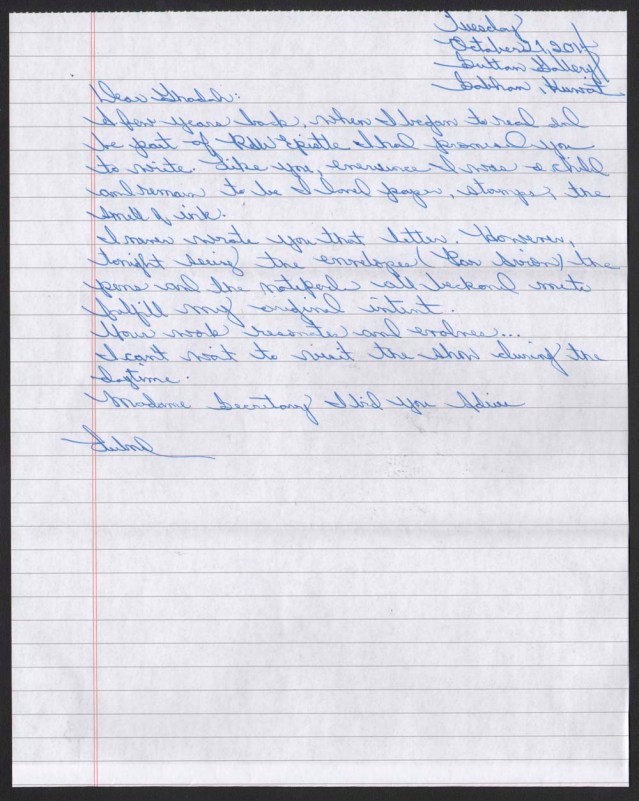 Tuesday
October 21, 2014
Sultan Gallery
Sabhan, Kuwait
Dear Ghadah:
A few years back, when I began to read and
be part of R&W Epistle I had promised you
to write. Like you, ever since I was a child
and remain to be I loved paper, stamps, the
smell of ink.
I never wrote you that letter. However,
tonight seeing the envelopes (Par Avion) the
pens and the notepads all beckoned me to
fulfill my original intent.
Your work resonates and endures...
I can't wait to visit the show during the
daytime.
Madame Secretary I bid you Adieu